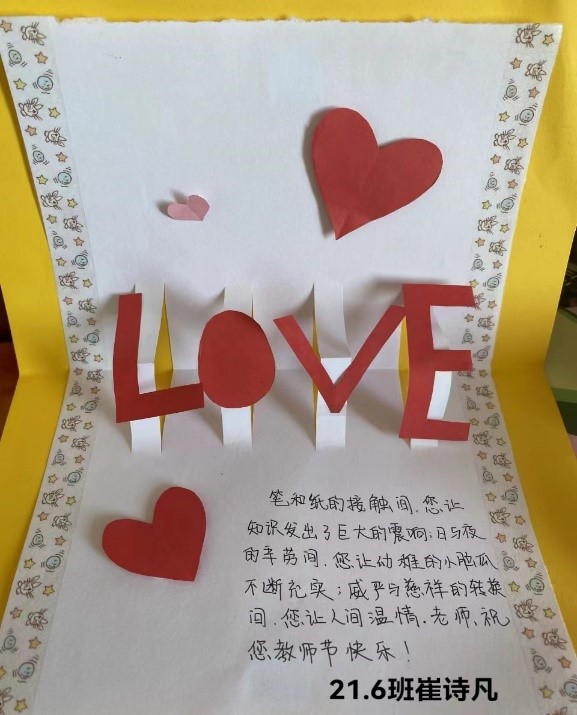 LOVE
笔和纸的接触间,您让
知识发出了巨大的震响;日与夜
的辛劳间,您让幼稚的小脑瓜
不断充实;威严与慈祥的转换
间,您让人间温情.老师、祝
您教师节快乐!
21.6班崔诗凡